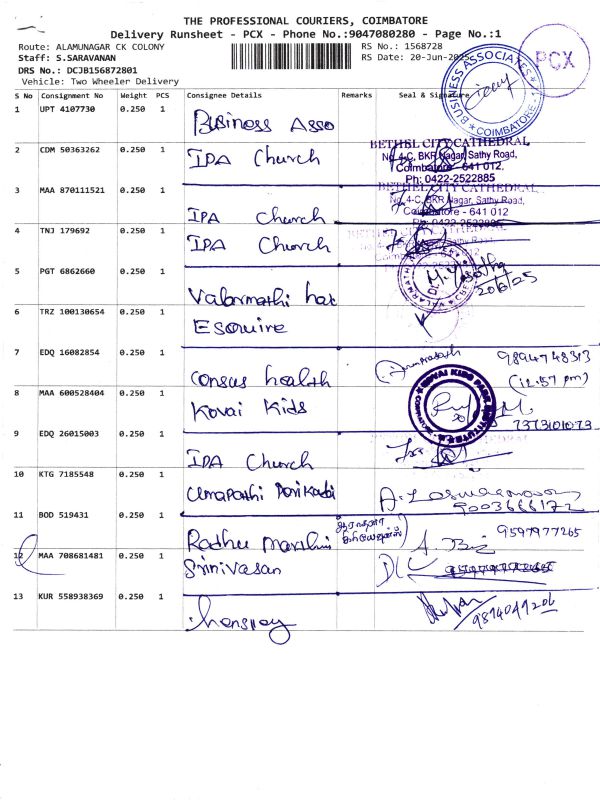 THE PROFESSIONAL COURIERS, COIMBATORE
Delivery Runsheet - PCX - Phone No.:9047080280 - Page No.:1
Route: ALAMUNAGAR CK COLONY
RS No.: 1568728
Staff: S.SARAVANAN
RS Date: 20-Jun-2025
DRS No.: DCJB156872801
Vehicle: Two Wheeler Delivery
PCX
BUSINESS ASSOCIATES COIMBATORE - 1
S No Consignment No Weight PCS Consignee Details Remarks Seal & Signature
1 UPT 4107730 0.250 1 Business Asso
2 CDM 50363262 0.250 1 IPA Church
BETHEL CITY CATHEDRAL
No. 4-C, BKR Nagar, Sathy Road,
Coimbatore - 641 012.
Ph: 0422-2522885
3 MAA 870111521 0.250 1 IPA Church
BETHEL CITY CATHEDRAL
No. 4-C, BKR Nagar, Sathy Road,
Coimbatore - 641 012
Ph: 0422-2522885
4 TNJ 179692 0.250 1 IPA Church
5 PGT 6862660 0.250 1 Valarmathi
20/6/25
6 TRZ 100130654 0.250 1 Esquire
7 EDQ 16082854 0.250 1 Consus health
9894748313
(12.57 pm)
8 MAA 600528404 0.250 1 Kovai Kids
7373101073
9 EDQ 26015003 0.250 1 IPA Church
10 KTG 7185548 0.250 1 Umapathi
9003666172
11 BOD 519431 0.250 1 Radhu
9597977265
12 MAA 708681481 0.250 1 Srinivasan
13 KUR 558938369 0.250 1